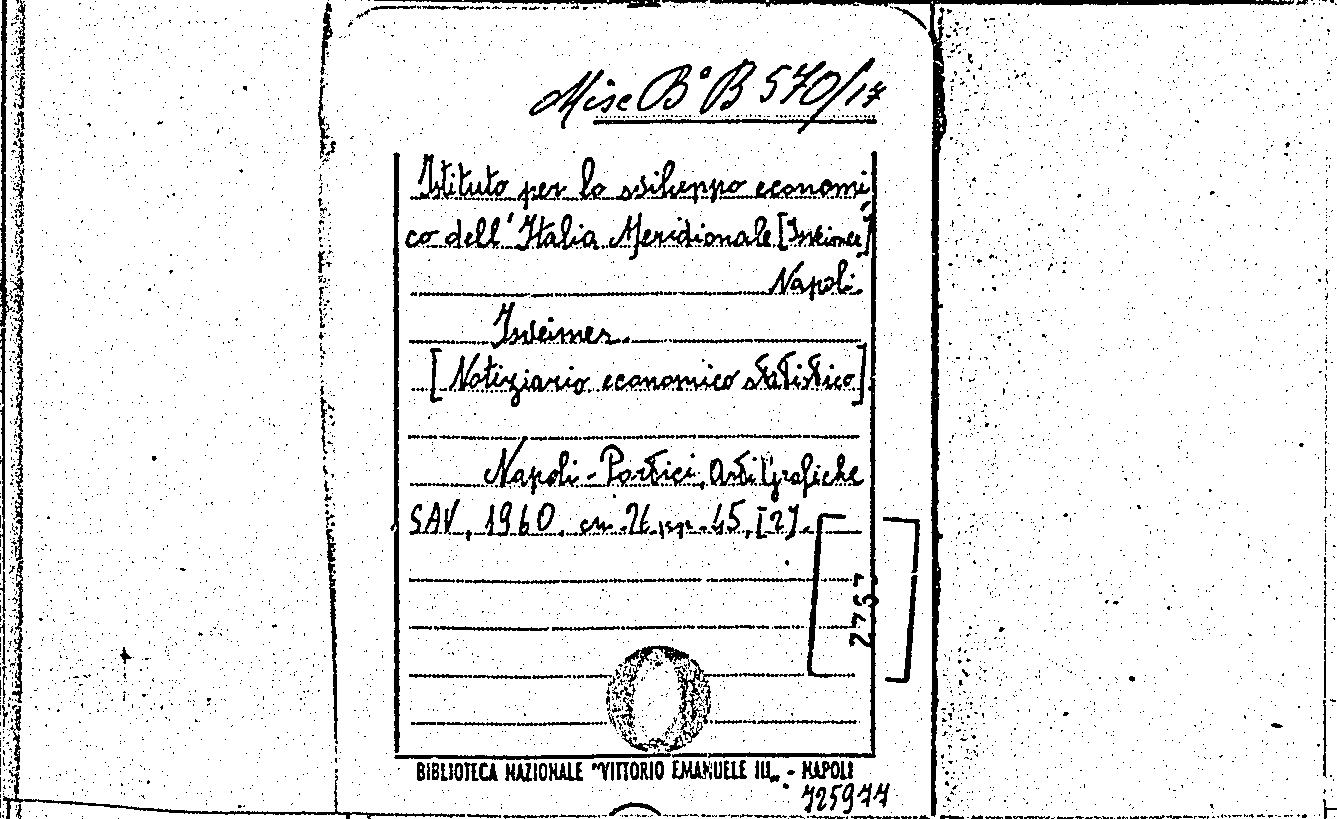 Misc B° B 570/17
Istituto per lo sviluppo economi
co dell'Italia Meridionale [Isveimer]
Napoli.
Isveimer.
[Notiziario economico statistico]
Napoli - Portici, Arti Grafiche
SAV, 1960. cm. 21. pp. 45, [2].
2757
BIBLIOTECA NAZIONALE "VITTORIO EMANUELE III„ - NAPOLI
725977